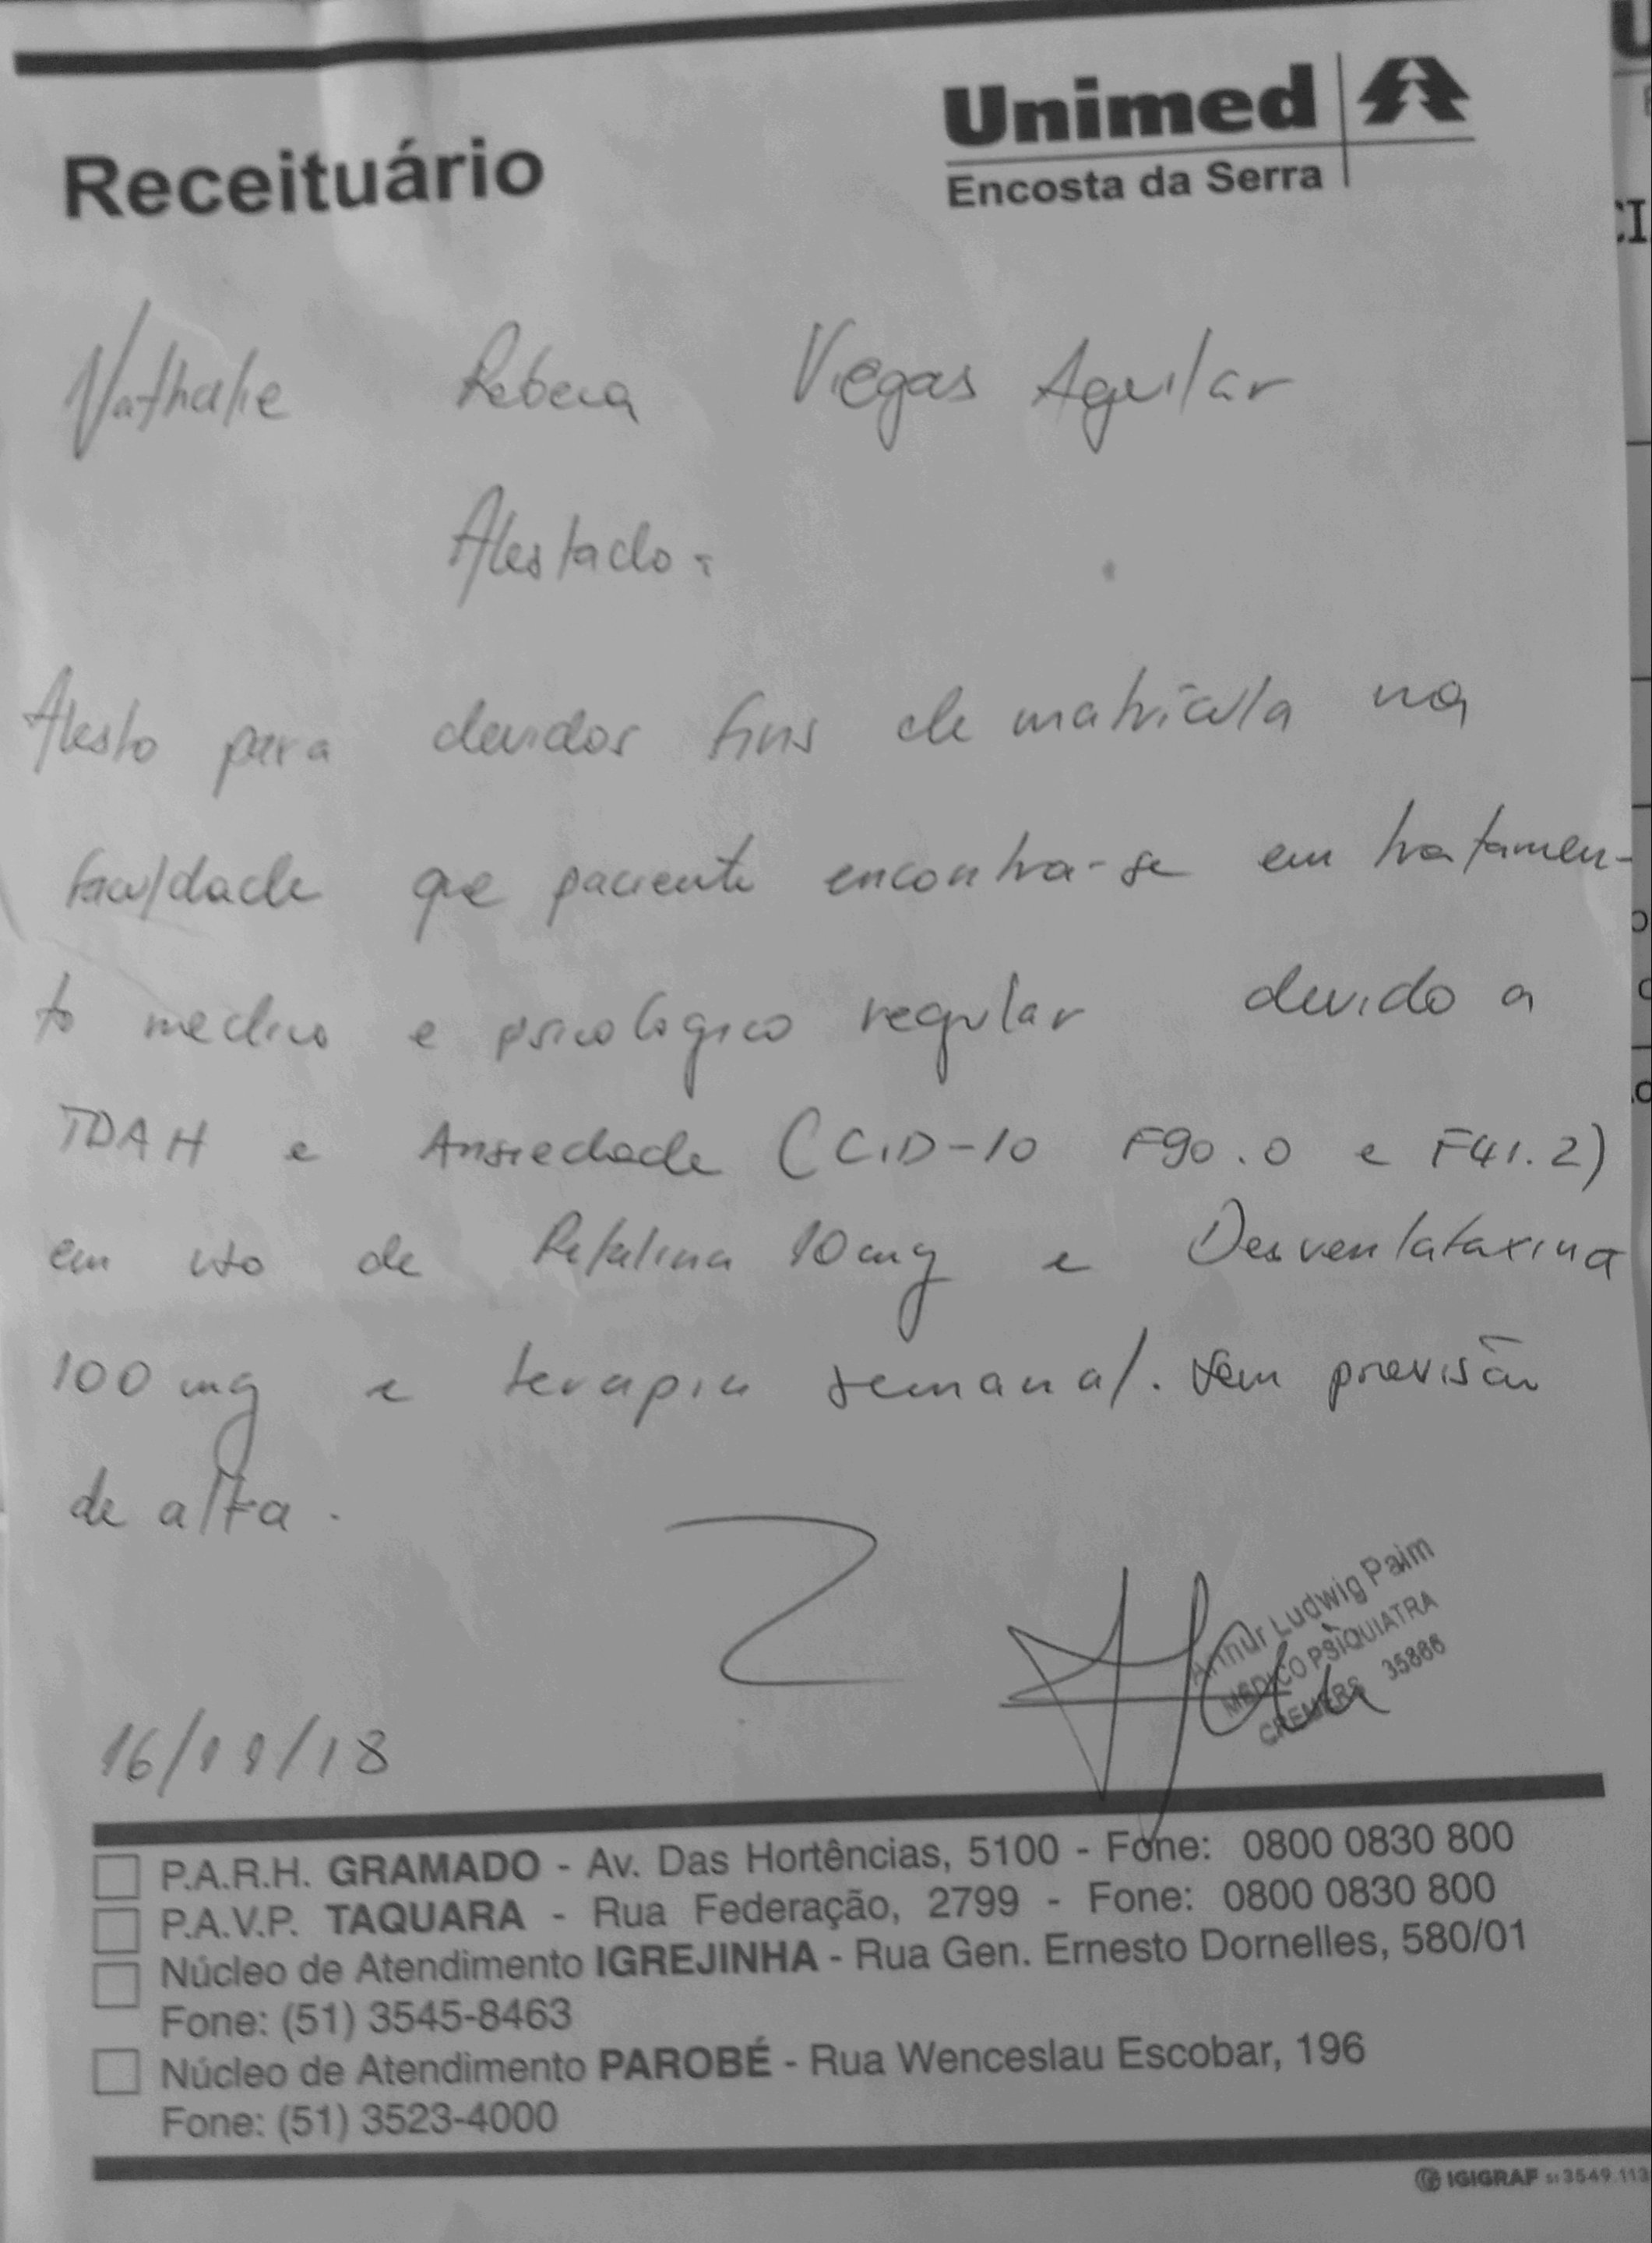 Receituário
Unimed
Encosta da Serra
Nathalie Rebeca Viegas Aguilar
Atestado:
Atesto para devidos fins de matrícula na
faculdade que paciente encontra-se em tratamen-
to medico e psicologico regular devido a
TDAH e Ansiedade (CID-10 F90.0 e F41.2)
em uso de Ritalina 10mg e Desvenlafaxina
100 mg e terapia semanal. Sem previsão
de alta.
Arthur Ludwig Paim
MÉDICO PSIQUIATRA
CREMERS 35886
16/11/18
P.A.R.H. GRAMADO - Av. Das Hortências, 5100 - Fone: 0800 0830 800
P.A.V.P. TAQUARA - Rua Federação, 2799 - Fone: 0800 0830 800
Núcleo de Atendimento IGREJINHA - Rua Gen. Ernesto Dornelles, 580/01
Fone: (51) 3545-8463
Núcleo de Atendimento PAROBÉ - Rua Wenceslau Escobar, 196
Fone: (51) 3523-4000
IGIGRAF 51 3549.113